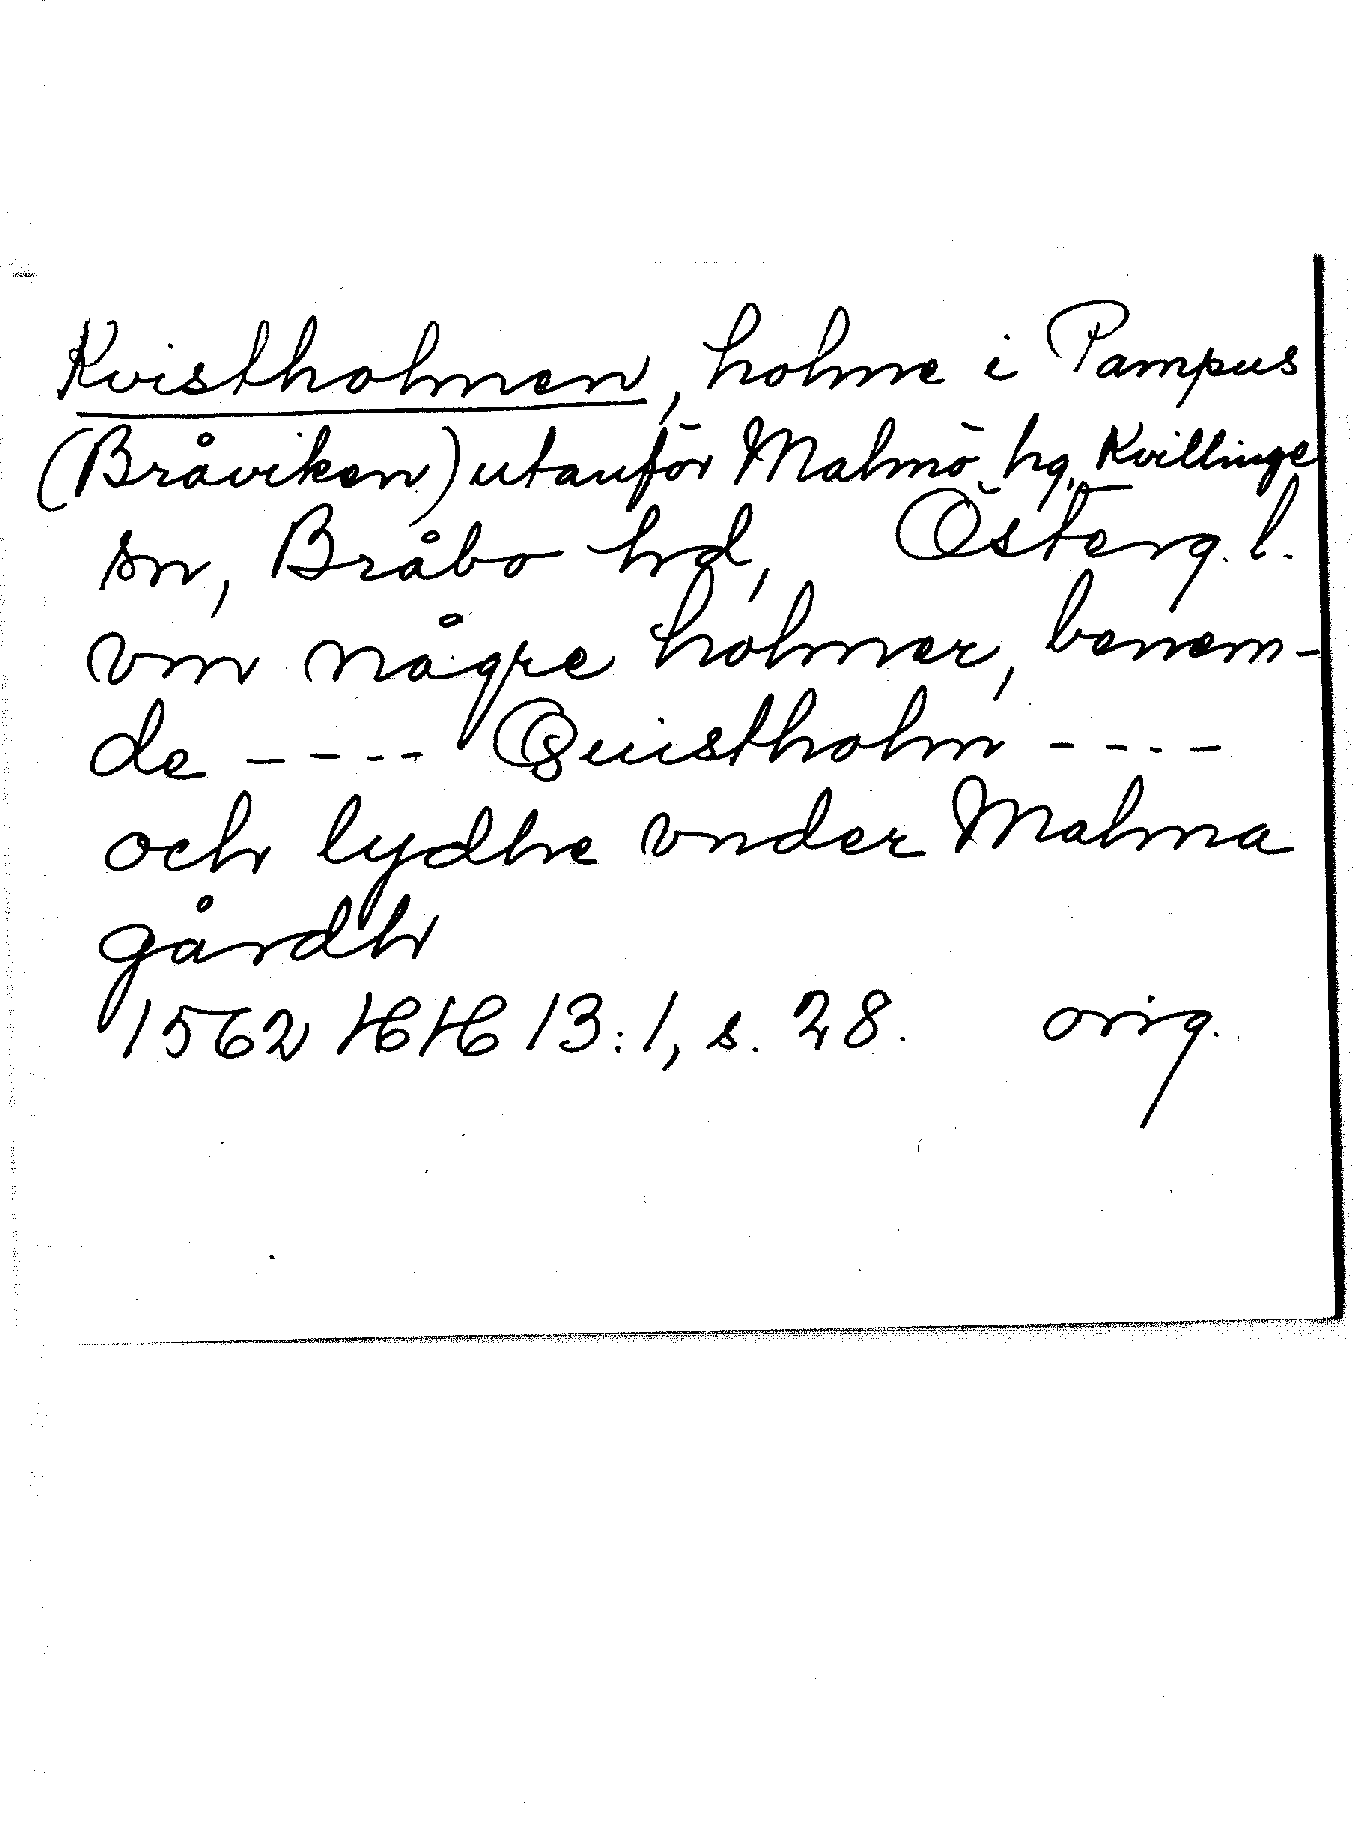 Kvistholmen, holme i Pampus
(Bråviken) utanför Malmö hg, Kvillinge
sn, Bråbo hd, Österg. l.
vm någre holmer, benem-
de ---- Quistholm ----
och lydhe vnder Malma
gårdh
1562 HH 13:1, s. 28. orig.